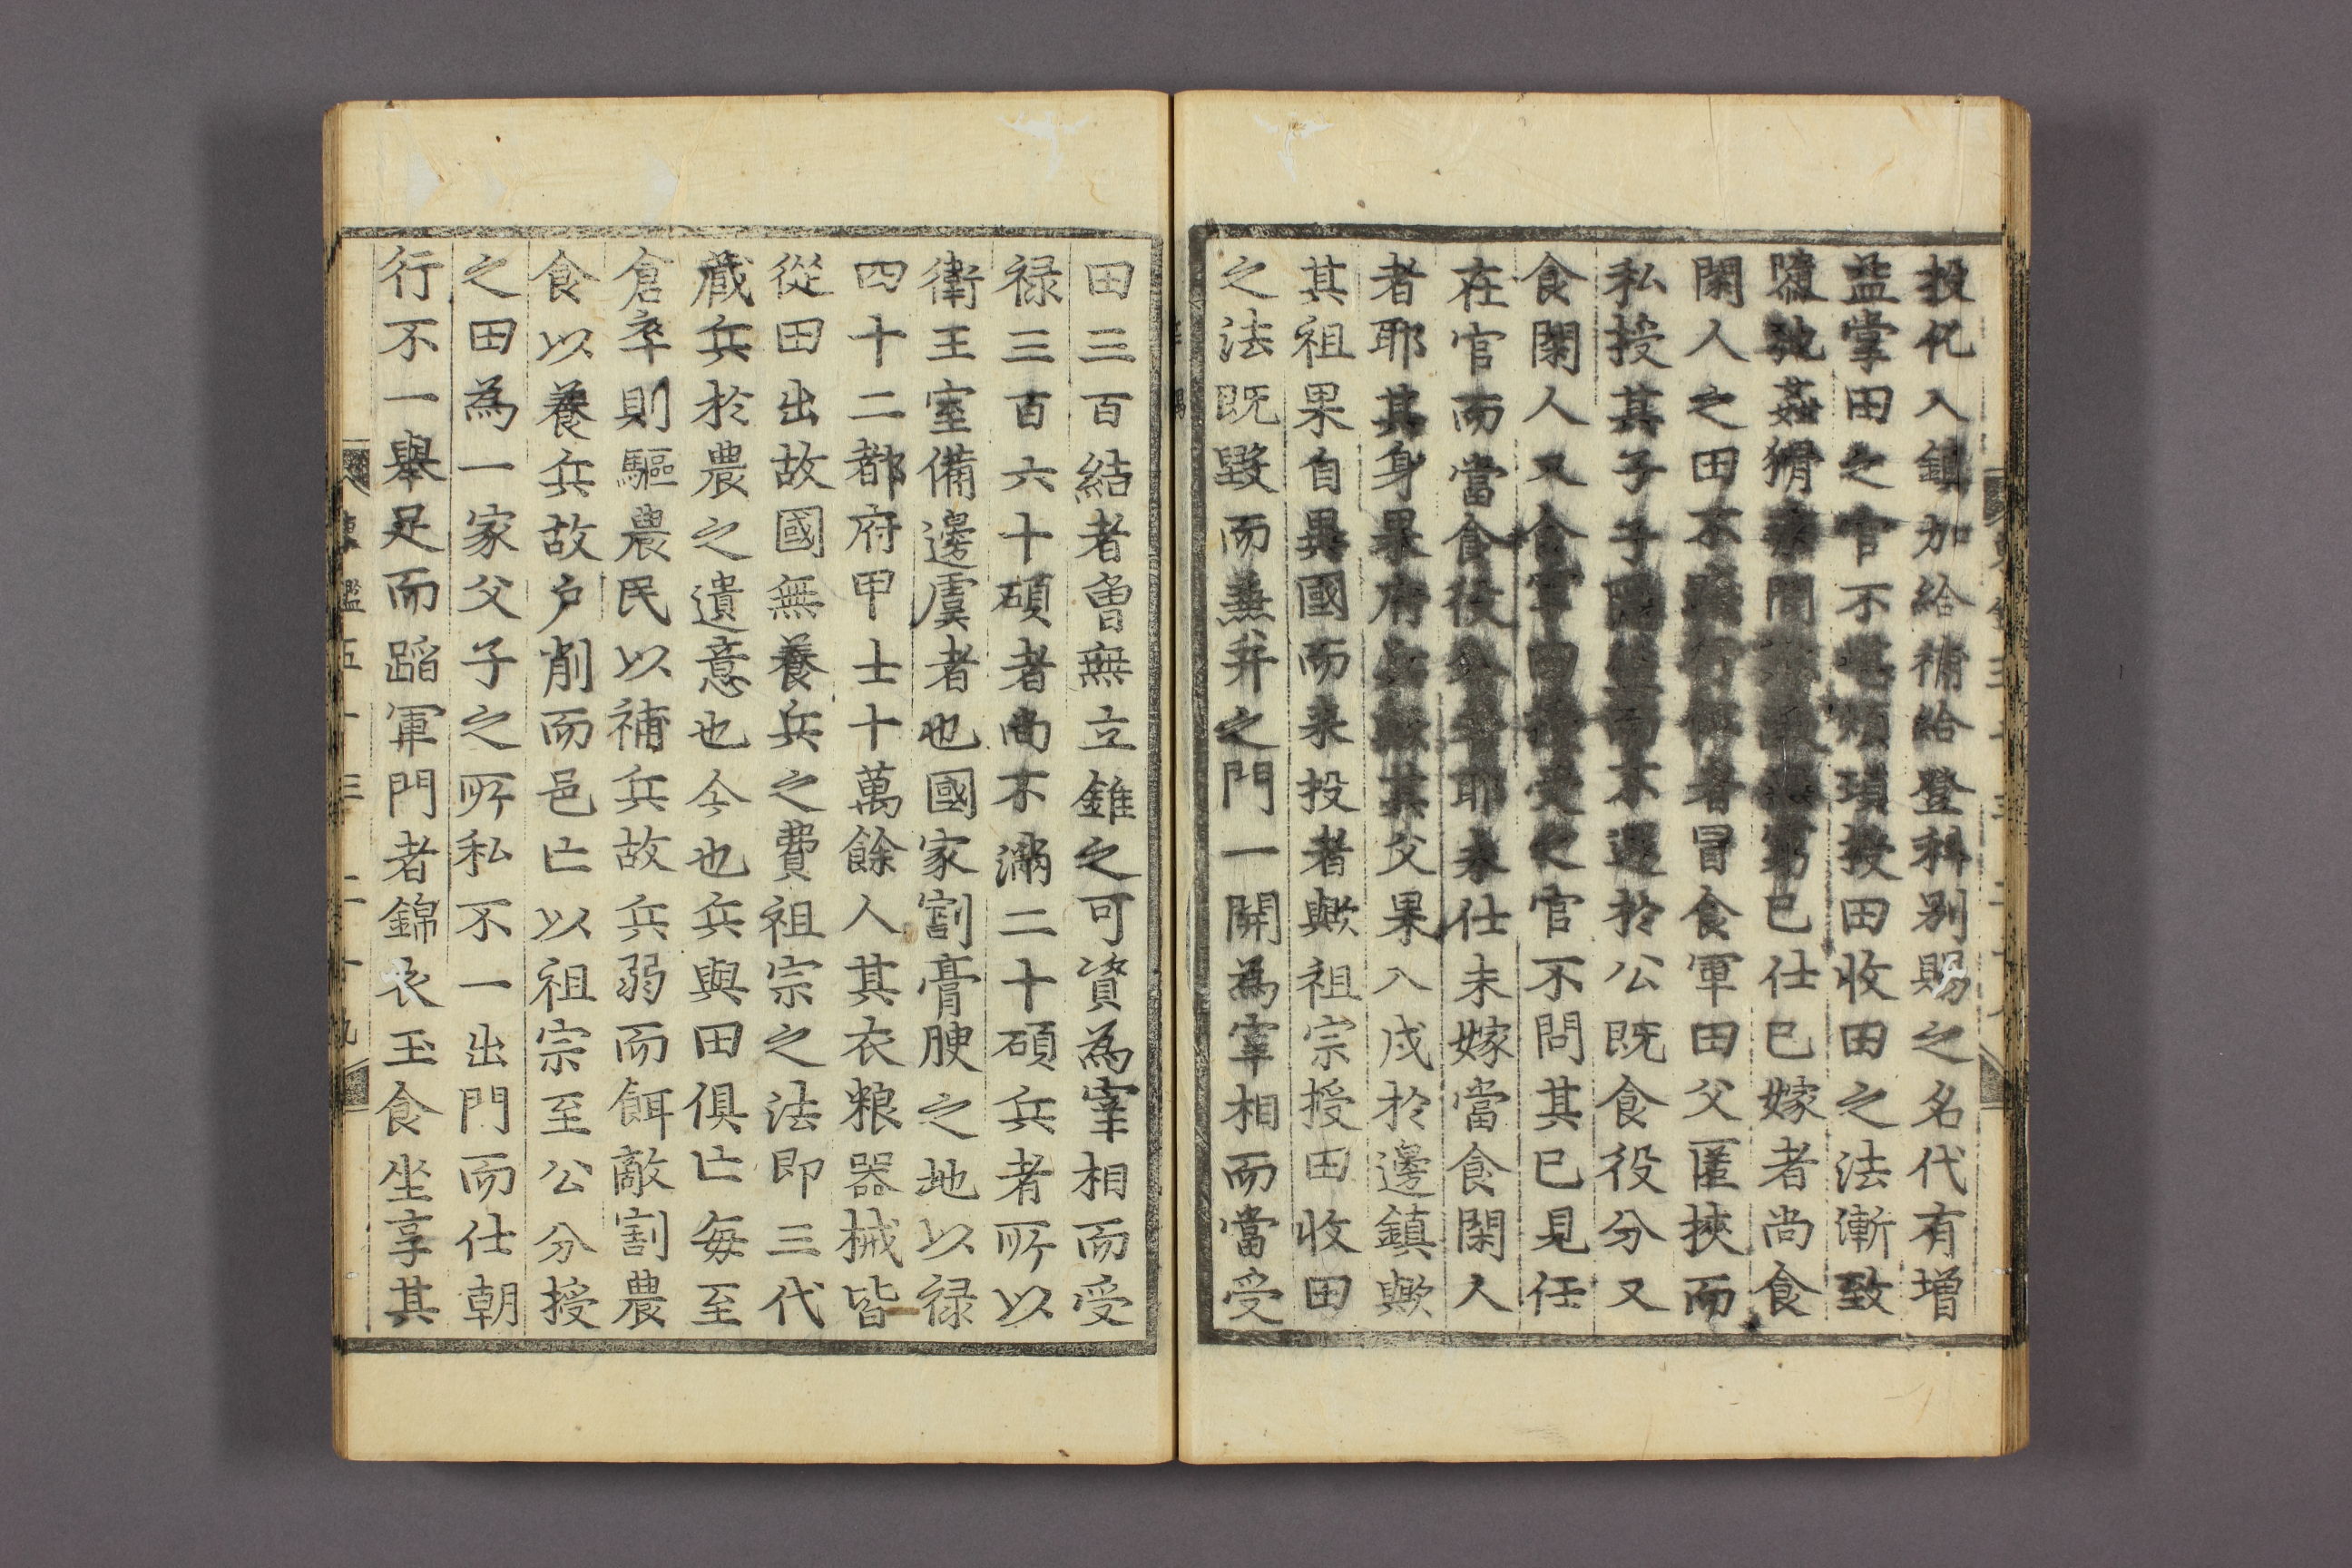 投化入鎮加給補給登科別賜之名代有增
益掌田之官不堪煩瑣授田收田之法漸致
隳弛姦猾乘間欺蔽無窮已仕已嫁者尚食
閑人之田不踐行伍者冒食軍田父匿挾而
私授其子子隱盜而不還於公既食役分又
食閑人又食軍田授受之官不問其已見任
在官而當食役分者耶未仕未嫁當食閑人
者耶其身果府兵歟其父果入戍於邊鎮歟
其祖果自異國而来投者歟祖宗授田收田
之法既毀而兼幷之門一開為宰相而當受
田三百結者曾無立錐之可資為宰相而受
禄三百六十碩者尚不滿二十碩兵者所以
衛王室備邊虞者也國家割膏腴之地以禄
四十二都府甲士十萬餘人其衣粮器械皆
從田出故國無養兵之費祖宗之法即三代
蔵兵於農之遺意也今也兵與田俱亡每至
倉卒則驅農民以補兵故兵弱而餌敵割農
食以養兵故户削而邑亡以祖宗至公分授
之田為一家父子之所私不一出門而仕朝
行不一舉足而蹈軍門者錦衣玉食坐享其